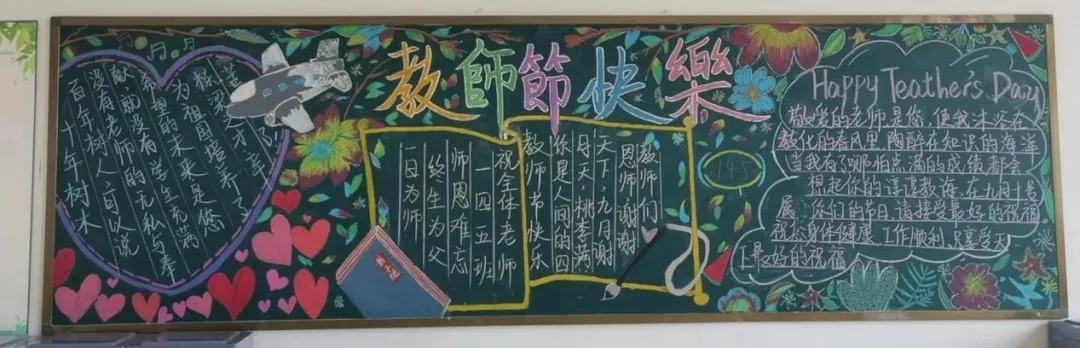 教師節快樂
十年树木
百年树人,可以说
没有老师的无私与奉
献,就没有学生充满
希望的未来是您
为祖国培养了
一日为师
终生为父
师恩难忘
一四五班
祝全体老师
教师节快乐
你是人间的四
月天,桃李满
天下,九月谢
恩师谢谢
教师们
145
Happy Teathers Day
敬爱的老师是您,使我沐浴在
教化的春风里,陶醉在知识的海洋
当我有了哪怕点滴的成绩都会
想起你的谆谆教诲,在九月十号
属于你们的节日,请接受最好的祝福
祝您身体健康,工作顺利,只享受天
上最好的祝福